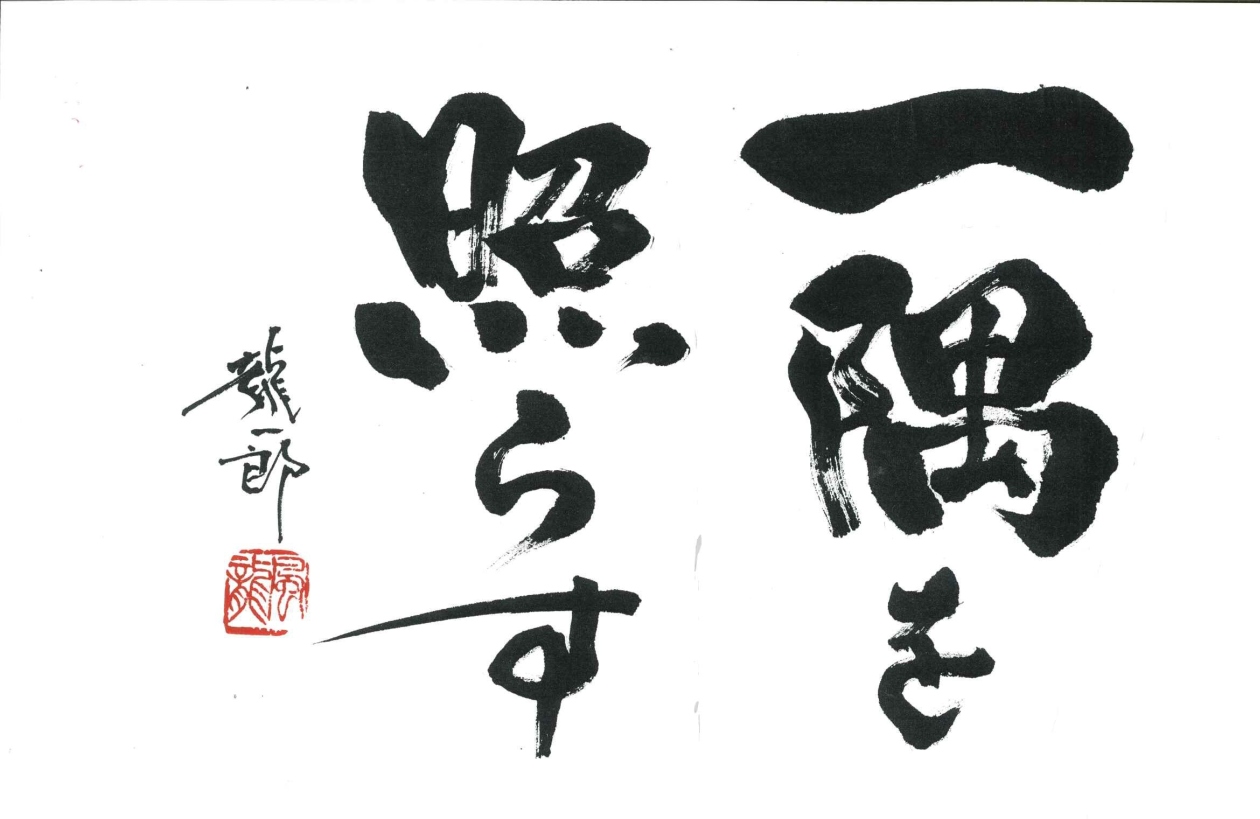 一隅を
照らす
龍一郎
風龍